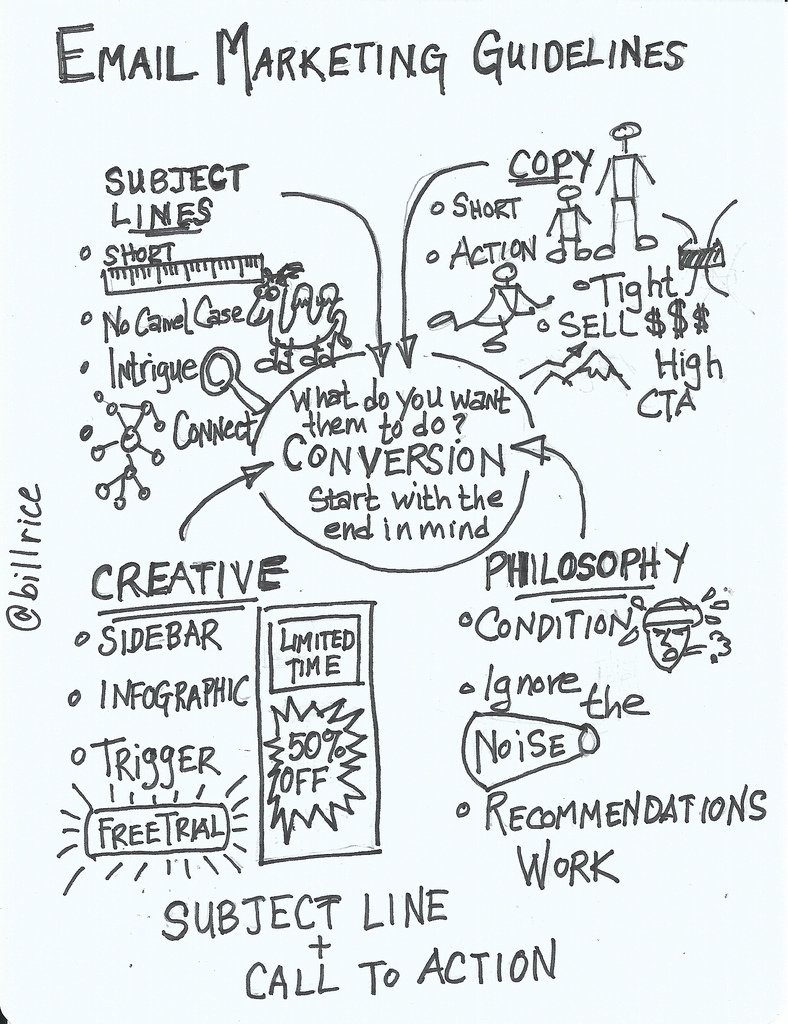 EMAIL MARKETING GUIDELINES
SUBJECT
LINES
SHORT
No Camel Case
Intrigue
CONNECT
COPY
SHORT
ACTION
Tight
SELL $$$
High
CTA
What do you want
them to do?
CONVERSION
Start with the
end in mind
@billrice
CREATIVE
SIDEBAR
INFOGRAPHIC
TRIGGER
FREE TRIAL
LIMITED
TIME
50%
OFF
PHILOSOPHY
CONDITION
Ignore the
NOISE
RECOMMENDATIONS
WORK
SUBJECT LINE
+
CALL TO ACTION